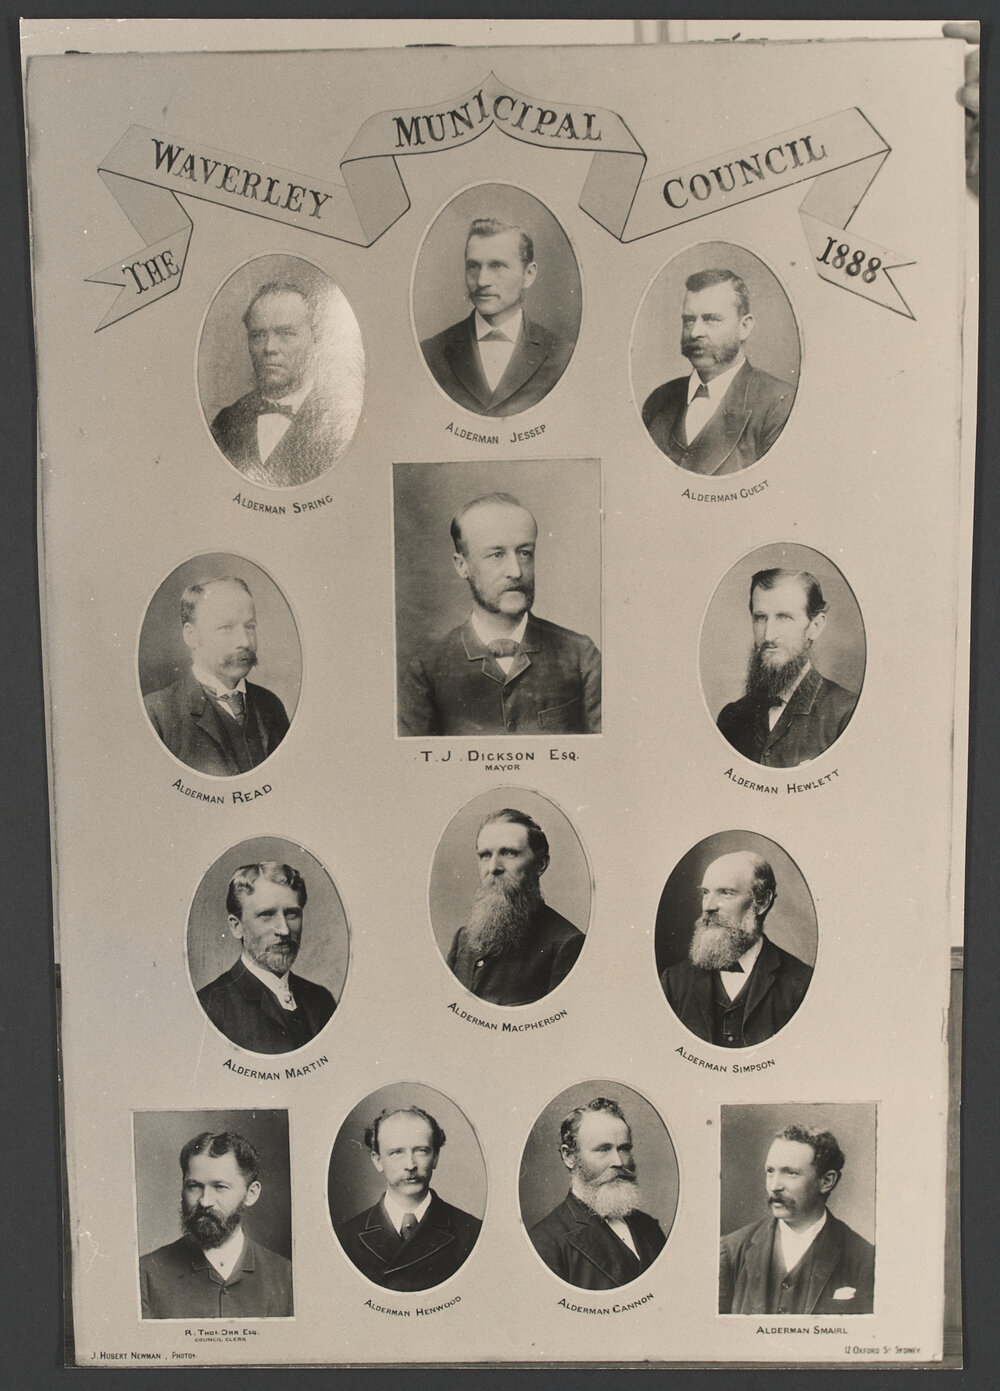 THE WAVERLEY MUNICIPAL COUNCIL 1888
ALDERMAN JESSEP
ALDERMAN SPRING
ALDERMAN GUEST
T.J. DICKSON ESQ.
MAYOR
ALDERMAN READ
ALDERMAN HEWLETT
ALDERMAN MACPHERSON
ALDERMAN MARTIN
ALDERMAN SIMPSON
R. THOS. ORR ESQ.
COUNCIL CLERK
ALDERMAN HENWOOD
ALDERMAN CANNON
ALDERMAN SMAIRL
J. HUBERT NEWMAN, PHOTOR.
12 OXFORD ST SYDNEY.